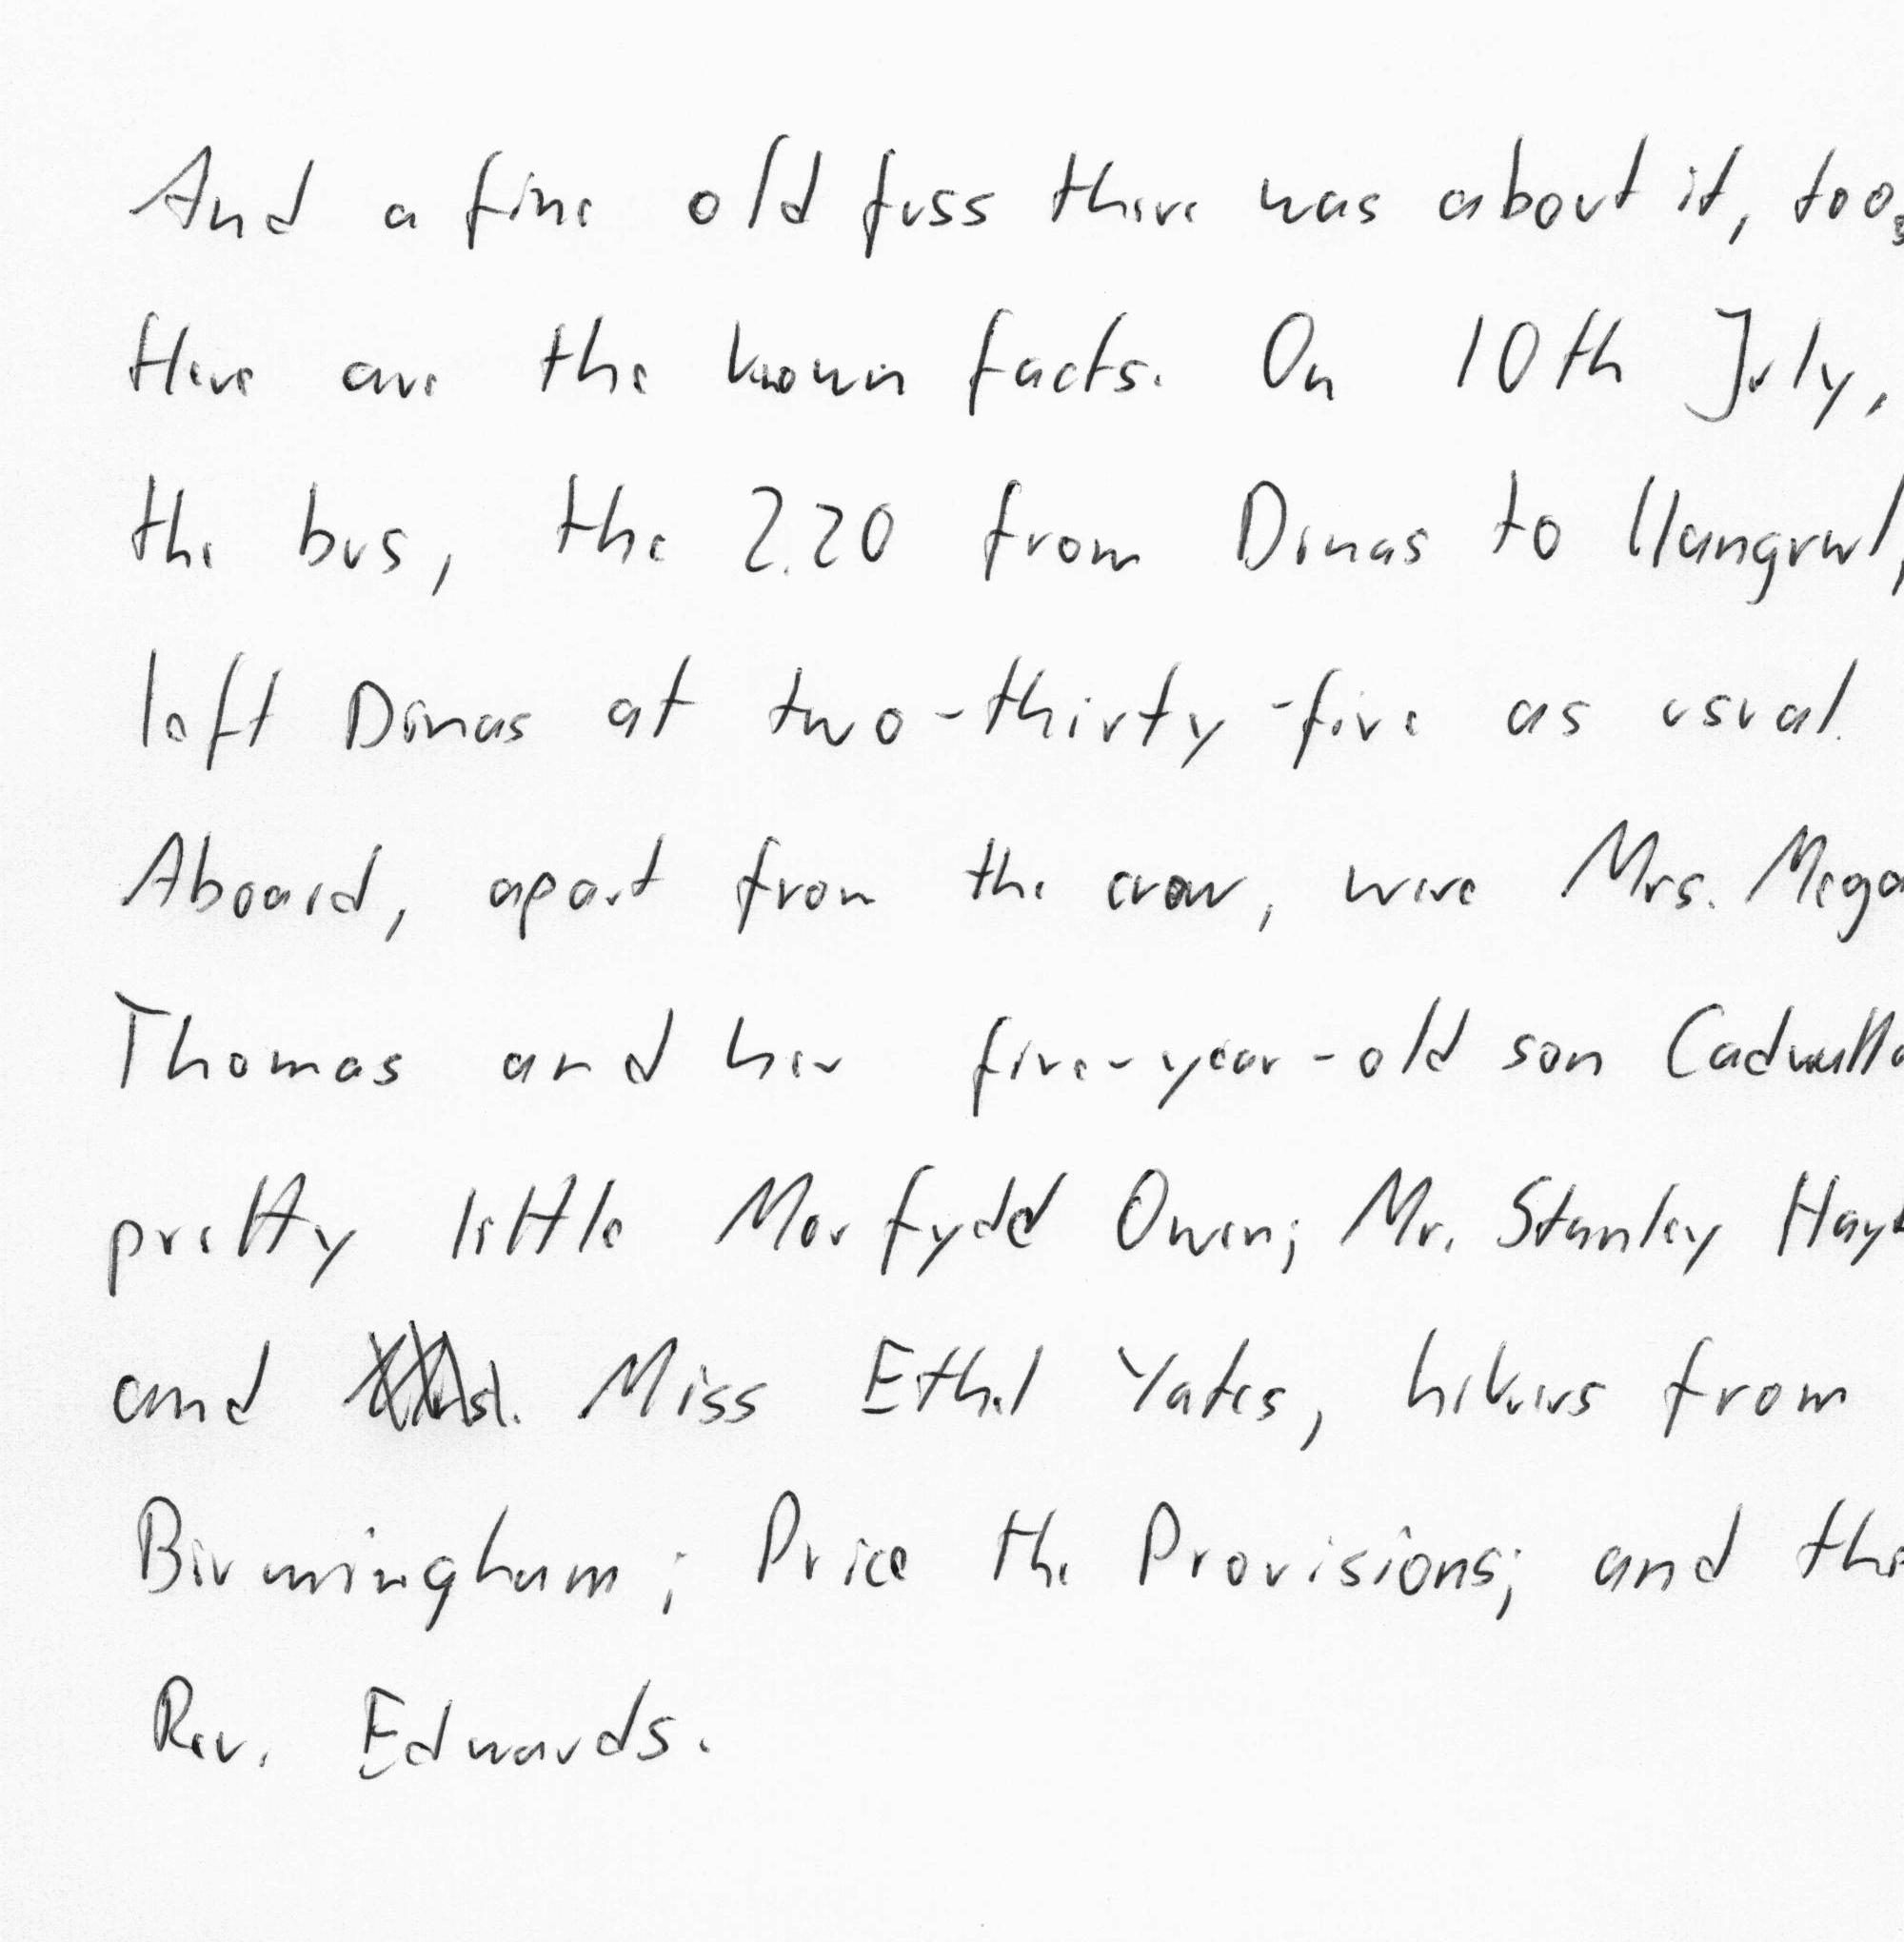 And a fine old fuss there was about it, too.
Here are the known facts. On 10th July,
the bus, the 2.20 from Dinas to
left Dinas at two-thirty-five as usual.
Aboard, apart from the crew, were Mrs.
Thomas and her five-year-old son
pretty little Morfydd Owen; Mr. Stanley
and Miss Ethel Yates, hikers from
Birmingham; Price the Provisions; and the
Rev. Edwards.